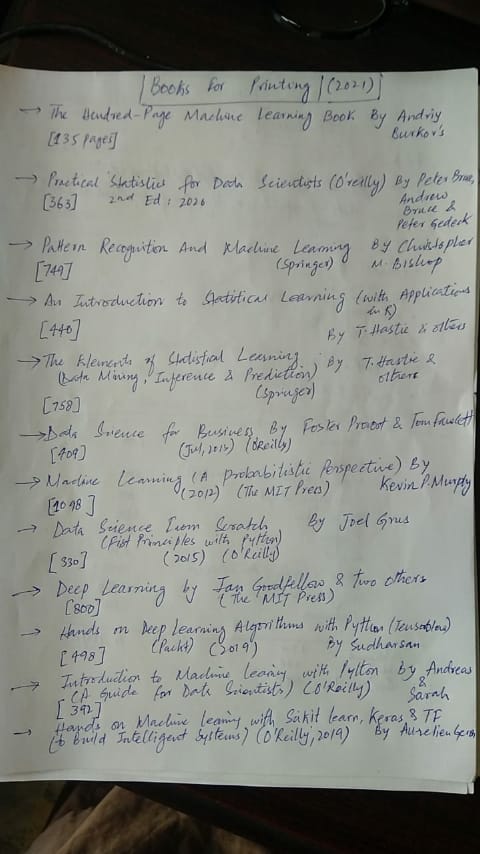 Books For Printing (2021)
→ The Hundred-Page Machine Learning Book By Andriy
Burkov's
[135 pages]
→ Practical Statistics for Data Scientists (O'reilly) By Peter Bruce,
[363] 2nd Ed: 2020 Andrew
Bruce &
Peter Gedeck
→ Pattern Recognition And Machine Learning By Christopher
[749] (Springer) M. Bishop
→ An Introduction to Statitical Learning (with Applications
in R)
[440] By T. Hastie & others
→ The Elements of Statistical Learning By T. Hastie &
(Data Mining, Inference & Prediction) others
(Springer)
[758]
→ Data Science for Business By Foster Provost & Tom Fawcett
[409] (Jul, 2013) (O'Reilly)
→ Machine Learning (A Probabilistic Perspective) By
[1098] (2012) (The MIT Press) Kevin P. Murphy
→ Data Science From Scratch By Joel Grus
(Fist Principles with Python)
[330] (2015) (O'Reilly)
→ Deep Learning by Ian Goodfellow & two others
[800] (The MIT Press)
→ Hands on Deep Learning Algorithms with Python (Tensorflow)
[498] (Packt) (2019) By Sudharsan
→ Introduction to Machine Learning with Python By Andreas
(A Guide for Data Scientists) (O'Reilly) &
[392] Sarah
→ Hands on Machine Learning with Scikit learn, Keras & TF
(to Build Intelligent Systems) (O'Reilly, 2019) By Aurelien Geron